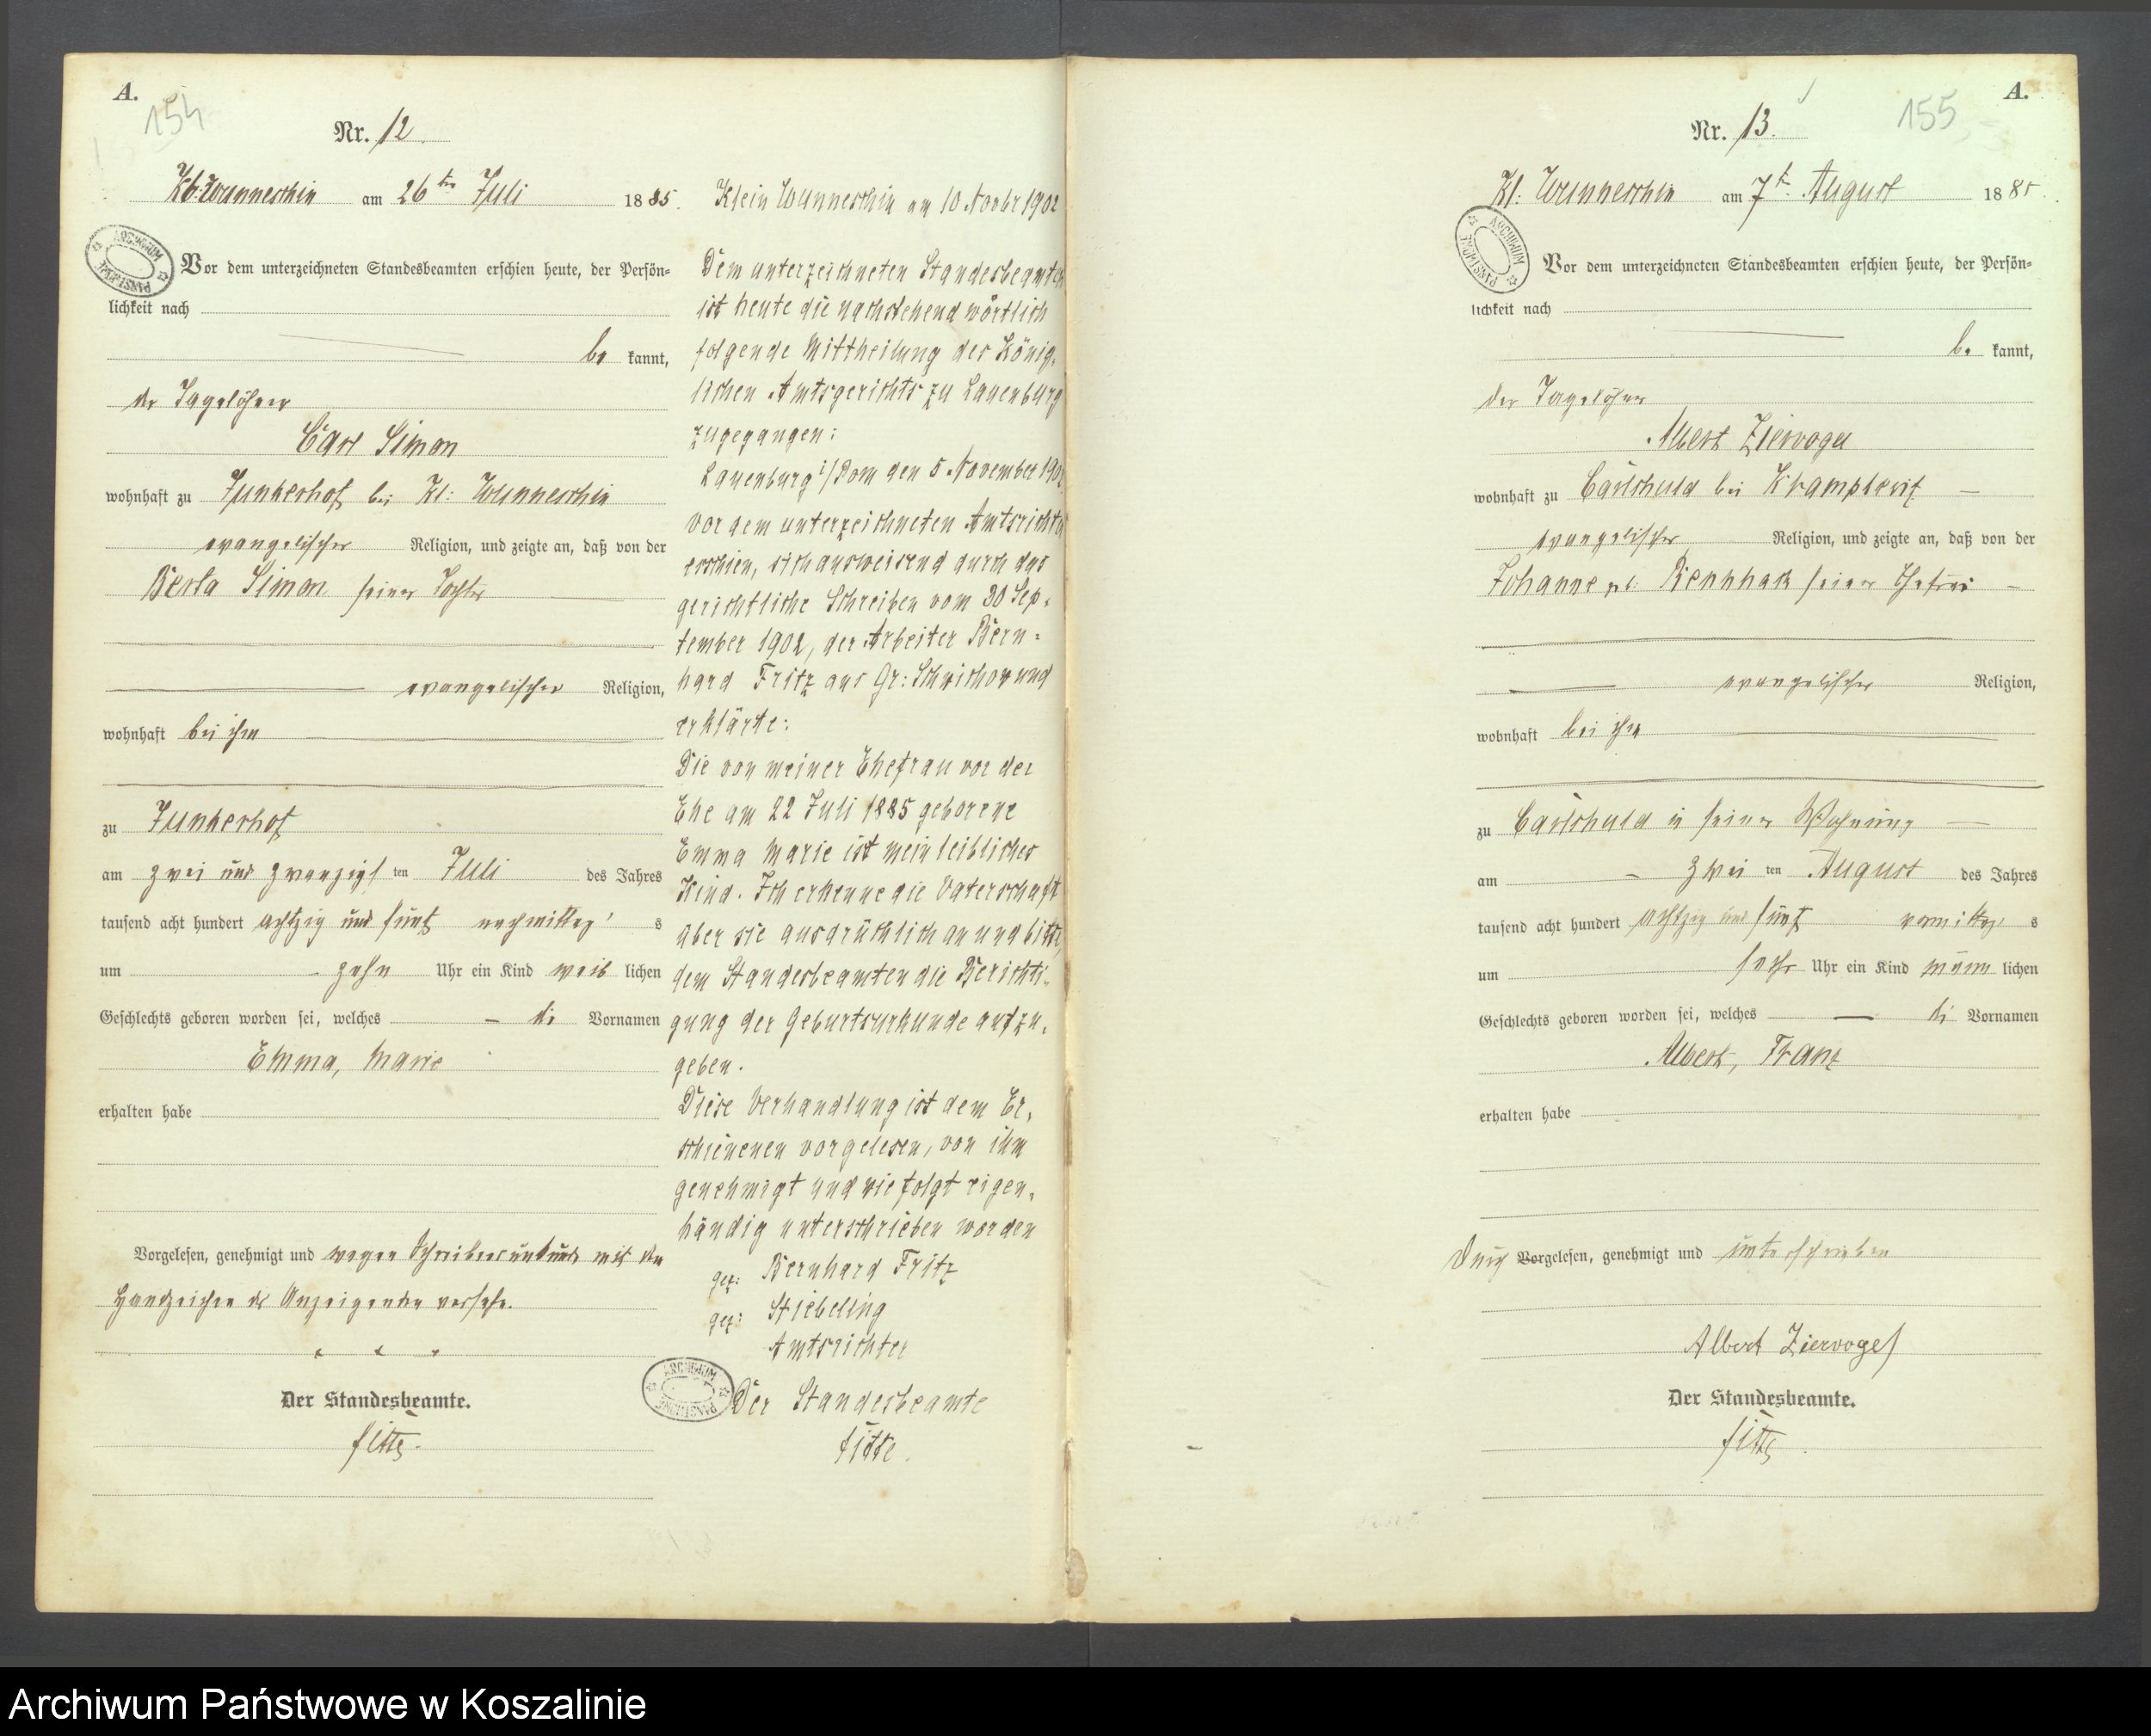 A.
154
Nr. 12.
Kl. Wunneschin am 26ten Juli 1885.
Vor dem unterzeichneten Standesbeamten erschien heute, der Persön=
lichkeit nach
be kannt,
der Tagelöhner
Carl Simon
wohnhaft zu Junkerhof bei Kl: Wunneschin
evangelischer Religion, und zeigte an, daß von der
Berta Simon seiner Tochter
evangelischer Religion,
wohnhaft bei ihm
zu Junkerhof
am zwei und zwanzigsten Juli des Jahres
tausend acht hundert achtzig und fünf nachmittags
um zehn Uhr ein Kind weib lichen
Geschlechts geboren worden sei, welches die Vornamen
Emma, Marie
erhalten habe
Vorgelesen, genehmigt und wegen Schreibensunkunde mit den
Handzeichen des Anzeigenden versehn.
Der Standesbeamte.
Klein Wunneschin am 10 Novbr 1902
Dem unterzeichneten Standesbeamten
ist heute die nachstehend wörtlich
folgende Mittheilung des König,
lichen Amtsgerichts zu Lauenburg
zugegangen:
Lauenburg i/Pom den 5 November 1902
Vor dem unterzeichneten Amtsrichter
erschien, sich ausweisend durch das
gerichtliche Schreiben vom 30 Sep=
tember 1902, der Arbeiter Bern=
hard Fritz aus Gr: Schwichow und
erklärte:
Die von meiner Ehefrau vor der
Ehe am 22 Juli 1885 geborene
Emma Marie ist mein leibliches
Kind. Ich erkenne die Vaterschaft
aber sie ausdrücklich an und bitte,
dem Standesbeamten die Berichti=
gung der Geburtsurkunde aufzu,
geben.
Diese Verhandlung ist dem Er,
schienenen vorgelesen, von ihm
genehmigt und wie folgt eigen,
händig unterschrieben worden
gez: Bernhard Fritz
gez: Stiebeling
Amtsrichter
Der Standesbeamte
A.
155
Nr. 13.
Kl: Wunneschin am 7t August 1885.
Vor dem unterzeichneten Standesbeamten erschien heute, der Persön=
lichkeit nach
be kannt,
der Tagelöhner
Albert Ziervogel
wohnhaft zu Carlshuld bei Krampkewitz
evangelischer Religion, und zeigte an, daß von der
Johanne geb: seiner Ehefrau
evangelischer Religion,
wohnhaft bei ihm
zu Carlshuld in seiner Wohnung
am zwei ten August des Jahres
tausend acht hundert achtzig und fünf vormittags
um sechs Uhr ein Kind männ lichen
Geschlechts geboren worden sei, welches die Vornamen
Albert, Franz
erhalten habe
Durch Vorgelesen, genehmigt und unterschrieben
Albert Ziervogel
Der Standesbeamte.
Archiwum Państwowe w Koszalinie